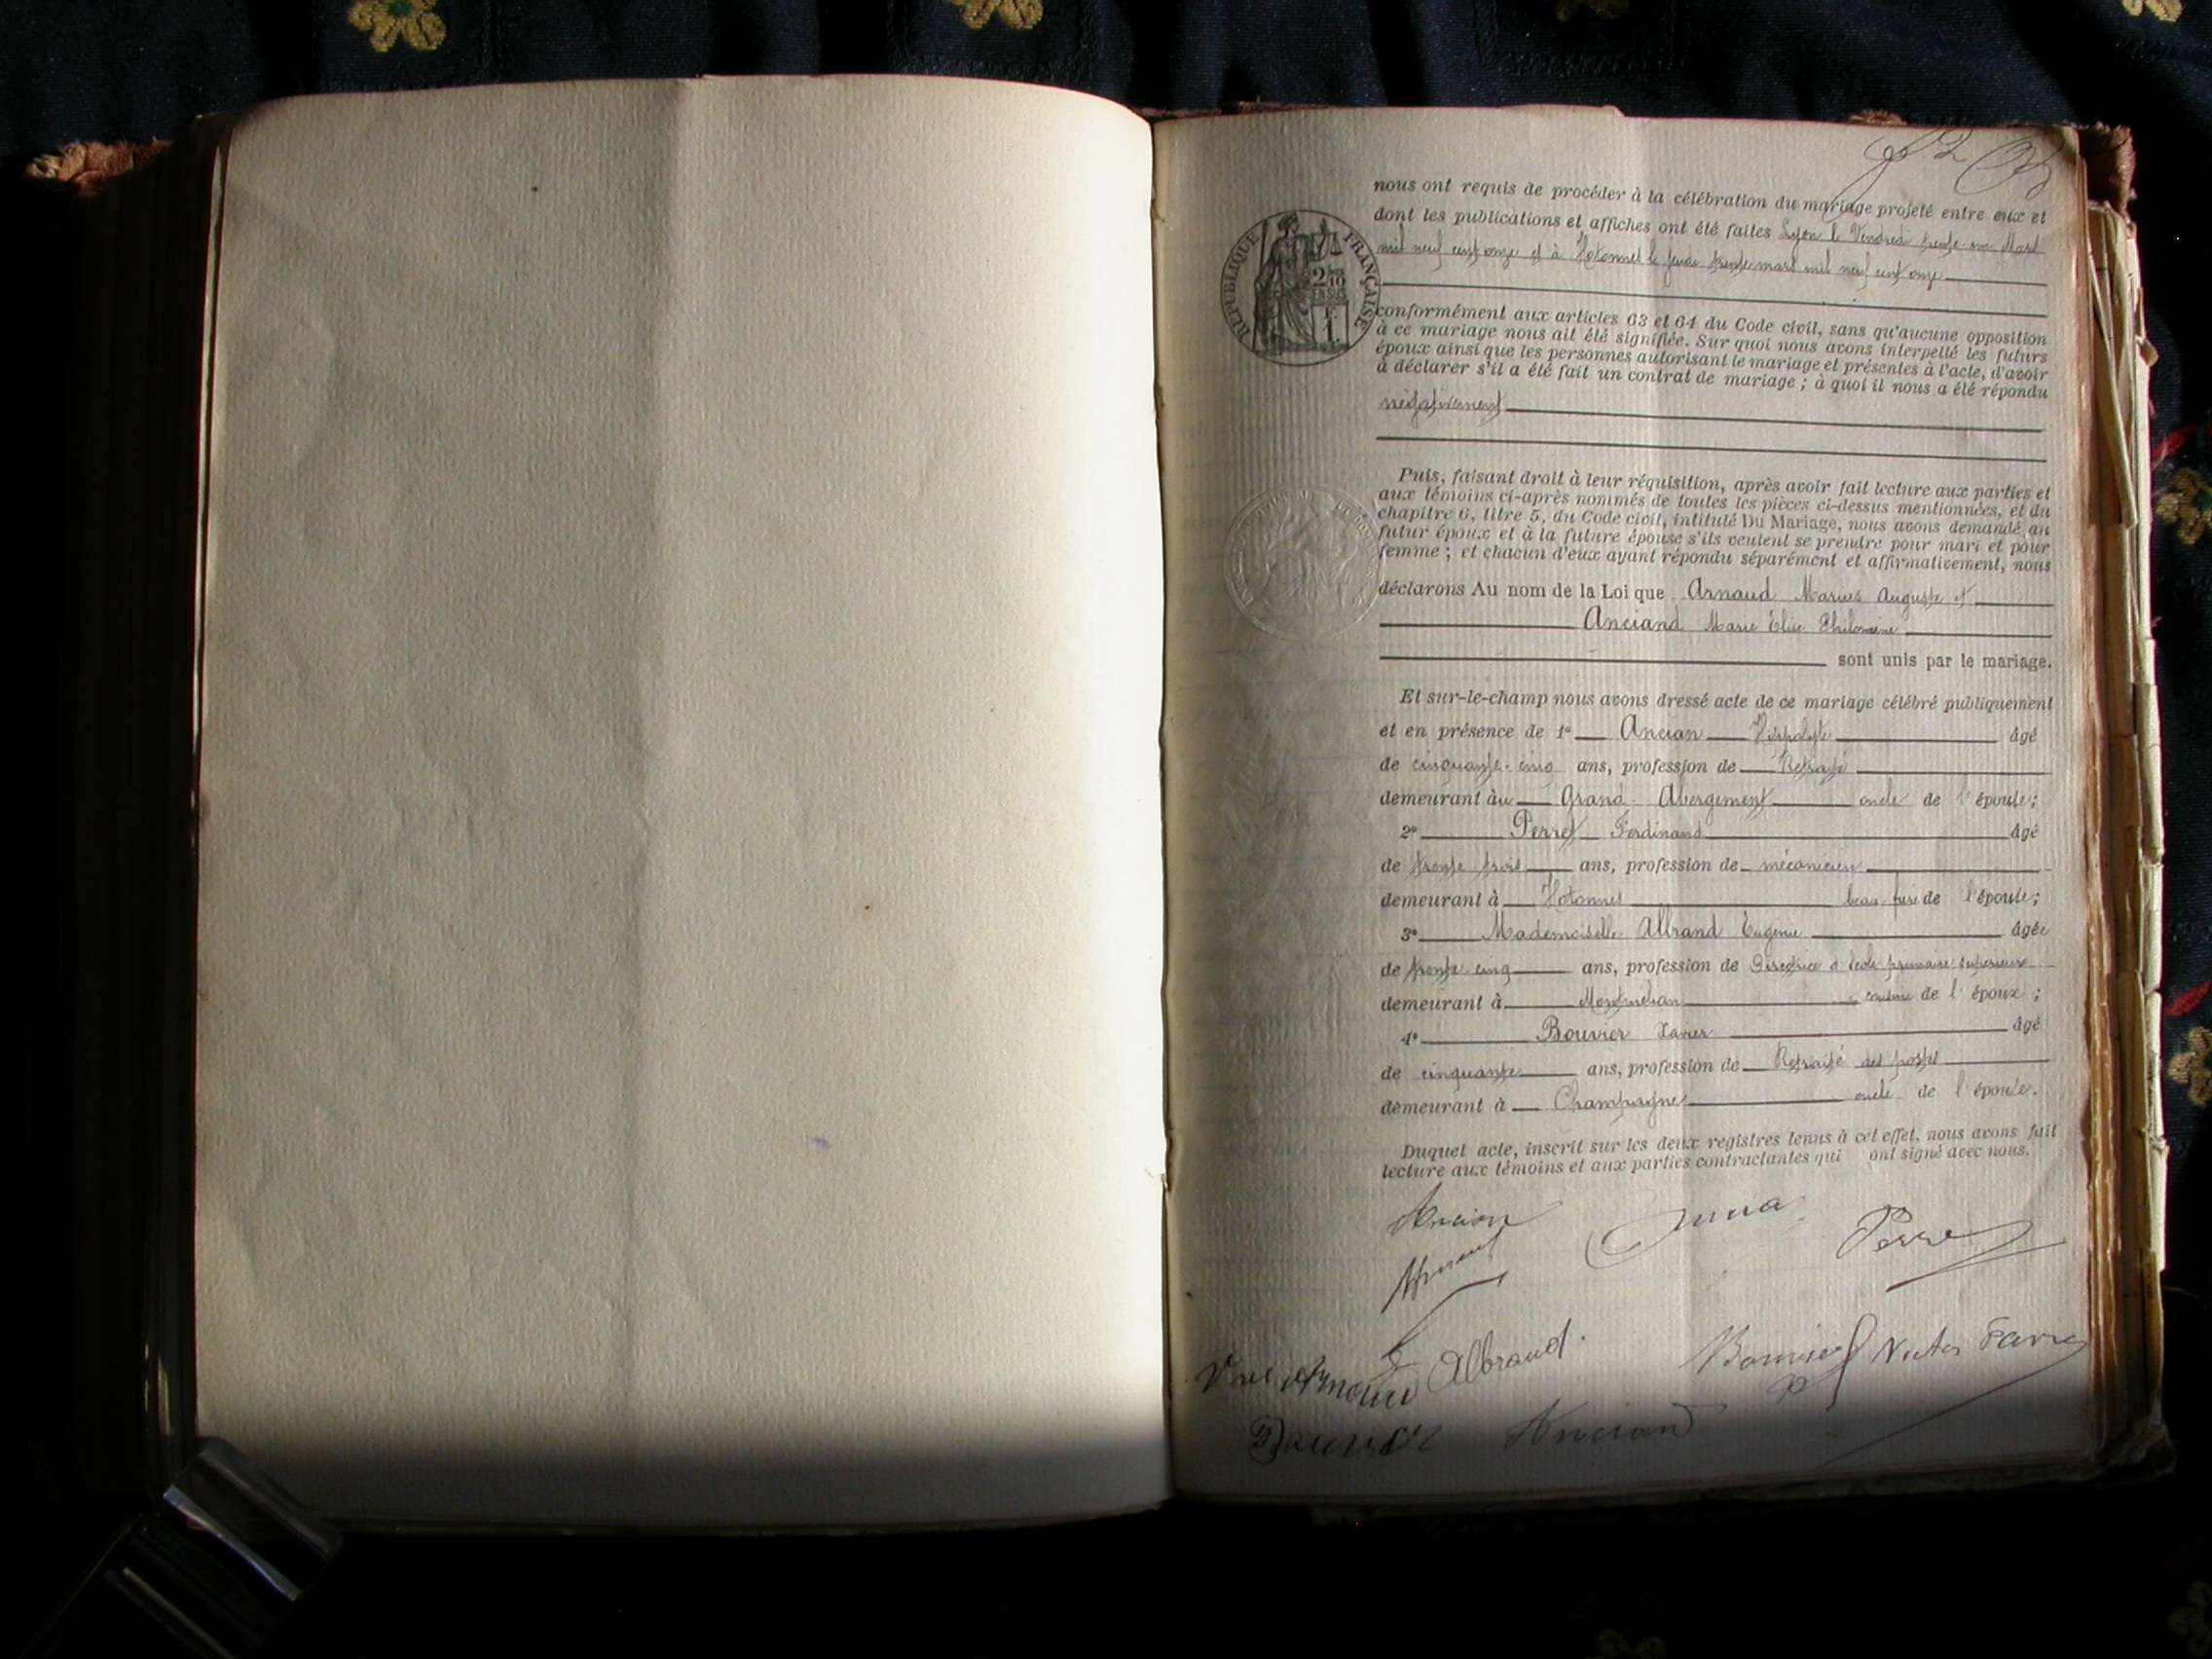 f. 2
nous ont requis de procéder à la célébration du mariage projeté entre eux et
dont les publications et affiches ont été faites Lyon le Vendredi trente-un Mars
mil neuf cent onze et à Hotonnes le jeudi trente mars mil neuf cent onze
RÉPUBLIQUE FRANÇAISE
2/10
EN SUS
1 F
conformément aux articles 63 et 64 du Code civil, sans qu'aucune opposition
à ce mariage nous ait été signifiée. Sur quoi nous avons interpellé les futurs
époux ainsi que les personnes autorisant le mariage et présentes à l'acte, d'avoir
à déclarer s'il a été fait un contrat de mariage ; à quoi il nous a été répondu
négativement
Puis, faisant droit à leur réquisition, après avoir fait lecture aux parties et
aux témoins ci-après nommés de toutes les pièces ci-dessus mentionnées, et du
chapitre 6, titre 5, du Code civil, intitulé Du Mariage, nous avons demandé au
futur époux et à la future épouse s'ils veulent se prendre pour mari et pour
femme ; et chacun d'eux ayant répondu séparément et affirmativement, nous
déclarons Au nom de la Loi que Arnaud Marius Auguste et
Anciand Marie Élise Philomène
sont unis par le mariage.
Et sur-le-champ nous avons dressé acte de ce mariage célébré publiquement
et en présence de 1° Ancian Hippolyte âgé
de cinquante-cinq ans, profession de Retraité
demeurant au Grand-Abergement oncle de l'épouse;
2° Perret Ferdinand âgé
de trente-trois ans, profession de mécanicien
demeurant à Hotonnes beau-frère de l'épouse;
3° Mademoiselle Albrand Eugénie âgée
de trente-cinq ans, profession de Directrice d'école primaire supérieure
demeurant à Montmélian cousine de l'époux ;
4° Bouvier Xavier âgé
de cinquante ans, profession de Retraité des postes
demeurant à Champagne oncle de l'épouse.
Duquel acte, inscrit sur les deux registres tenus à cet effet, nous avons fait
lecture aux témoins et aux parties contractantes qui ont signé avec nous.
Ancian Perret
Arnaud
Vve Arnaud Albrand Bouvier Victor Favre
Anciand